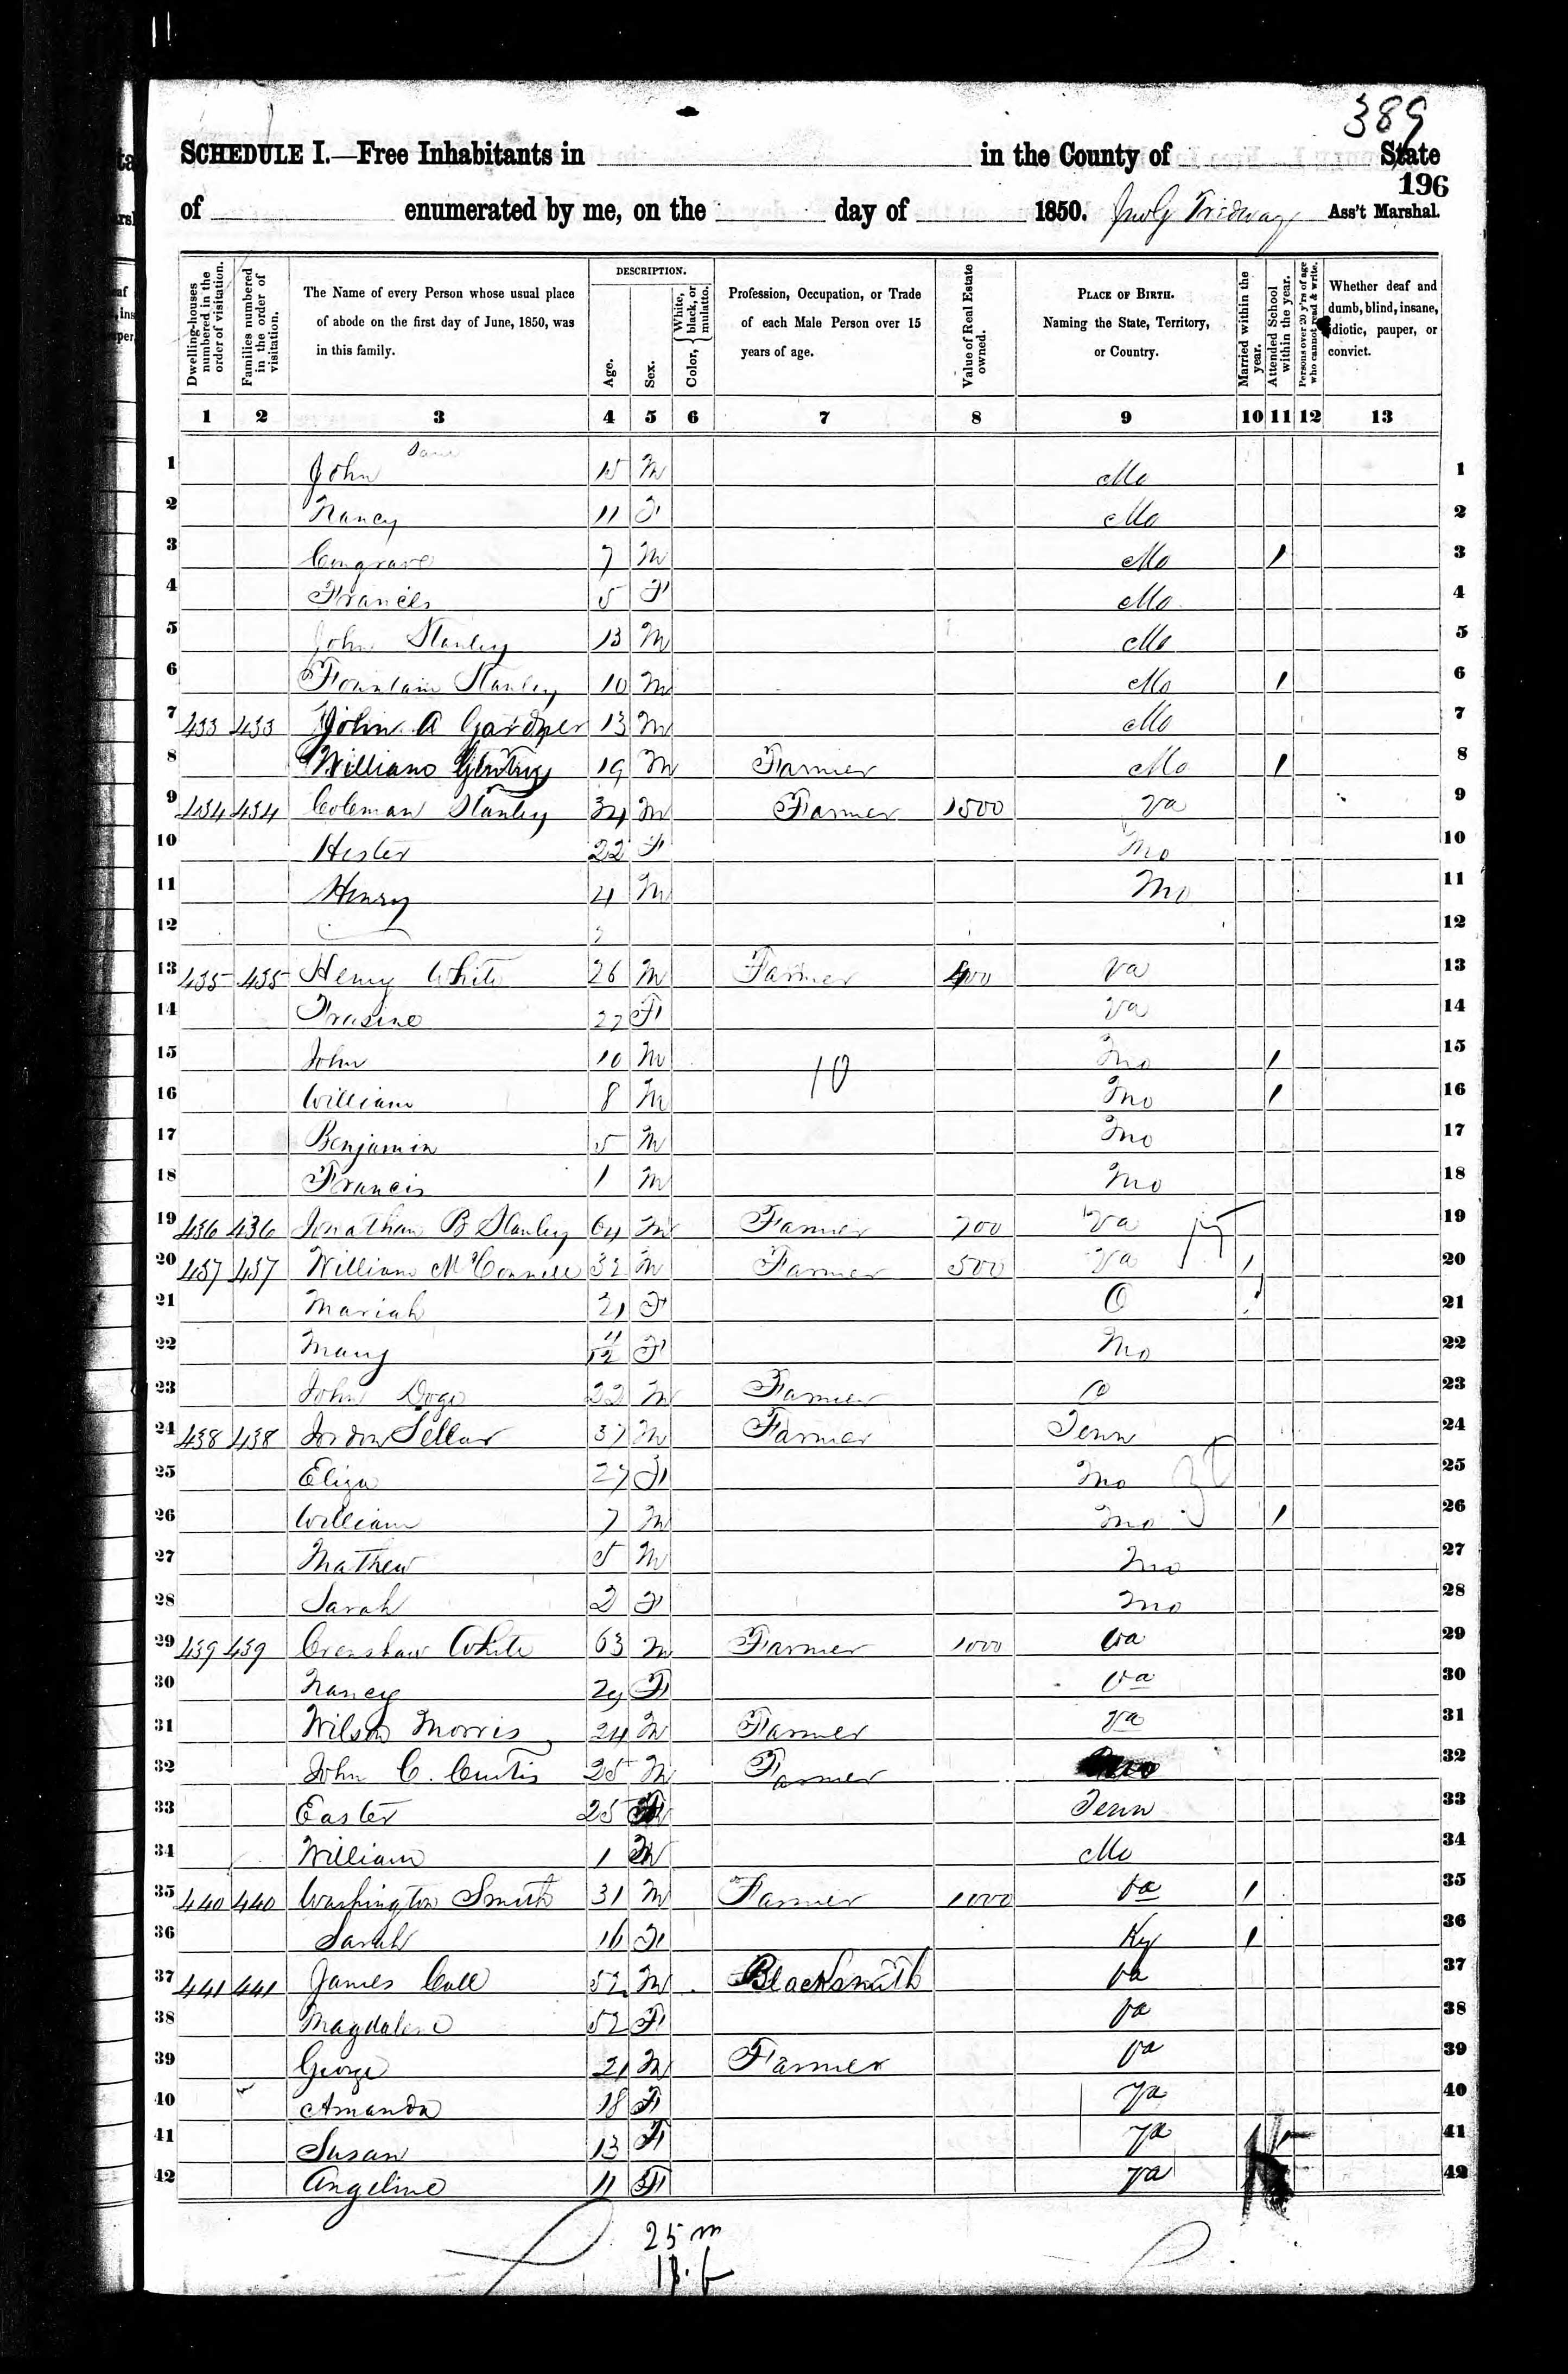 389
SCHEDULE I.—Free Inhabitants in in the County of State
196
of enumerated by me, on the day of 1850. Jno G Tredway Ass't Marshal.
Dwelling-houses numbered in the order of visitation.
Families numbered in the order of visitation.
The Name of every Person whose usual place of abode on the first day of June, 1850, was in this family.
DESCRIPTION.
Age.
Sex.
Color, { White, black, or mulatto.
Profession, Occupation, or Trade of each Male Person over 15 years of age.
Value of Real Estate owned.
PLACE OF BIRTH. Naming the State, Territory, or Country.
Married within the year.
Attended School within the year.
Persons over 20 y'rs of age who cannot read & write.
Whether deaf and dumb, blind, insane, idiotic, pauper, or convict.
1 2 3 4 5 6 7 8 9 10 11 12 13
1 John 15 M Mo 1
2 Nancy 11 F Mo 2
3 7 M Mo 1 3
4 Francis 5 F Mo 4
5 John Stanley 13 M Mo 5
6 Fountain Stanley 10 M Mo 1 6
7 433 433 John A Gardner 13 M Mo 7
8 William Gentry 19 M Farmer Mo 1 8
9 434 434 Coleman Stanley 34 M Farmer 1500 Va 9
10 Hester 22 F Mo 10
11 Henry 4 M Mo 11
12 12
13 435 435 Henry White 26 M Farmer 400 Va 13
14 27 F Va 14
15 John 10 M 10 Mo 1 15
16 William 8 M Mo 1 16
17 Benjamin 5 M Mo 17
18 Francis 1 M Mo 18
19 436 436 Jonathan B Stanley 64 M Farmer 700 Va 19
20 437 437 William McConnell 32 M Farmer 500 Va 1 20
21 Mariah 21 F O 1 21
22 Mary 11/12 F Mo 22
23 John 22 M Farmer O 23
24 438 438 Jordon Sellar 37 M Farmer Tenn 24
25 Eliza 27 F Mo 25
26 William 7 M Mo 1 26
27 Mathew 5 M Mo 27
28 Sarah 2 F Mo 28
29 439 439 Crenshaw White 63 M Farmer 1000 Va 29
30 Nancy 29 F Va 30
31 Wilson Morris 24 M Farmer Va 31
32 John C. Curtis 25 M Farmer 32
33 Easter 25 F Tenn 33
34 William 1 M Mo 34
35 440 440 Washington Smith 31 M Farmer 1000 Va 1 35
36 Sarah 16 F Ky 1 36
37 441 441 James Call 52 M Blacksmith Va 37
38 Magdalene 52 F Va 38
39 George 21 M Farmer Va 39
40 Amanda 18 F Va 40
41 Susan 13 F Va 41
42 Angeline 11 F Va 42
25 m